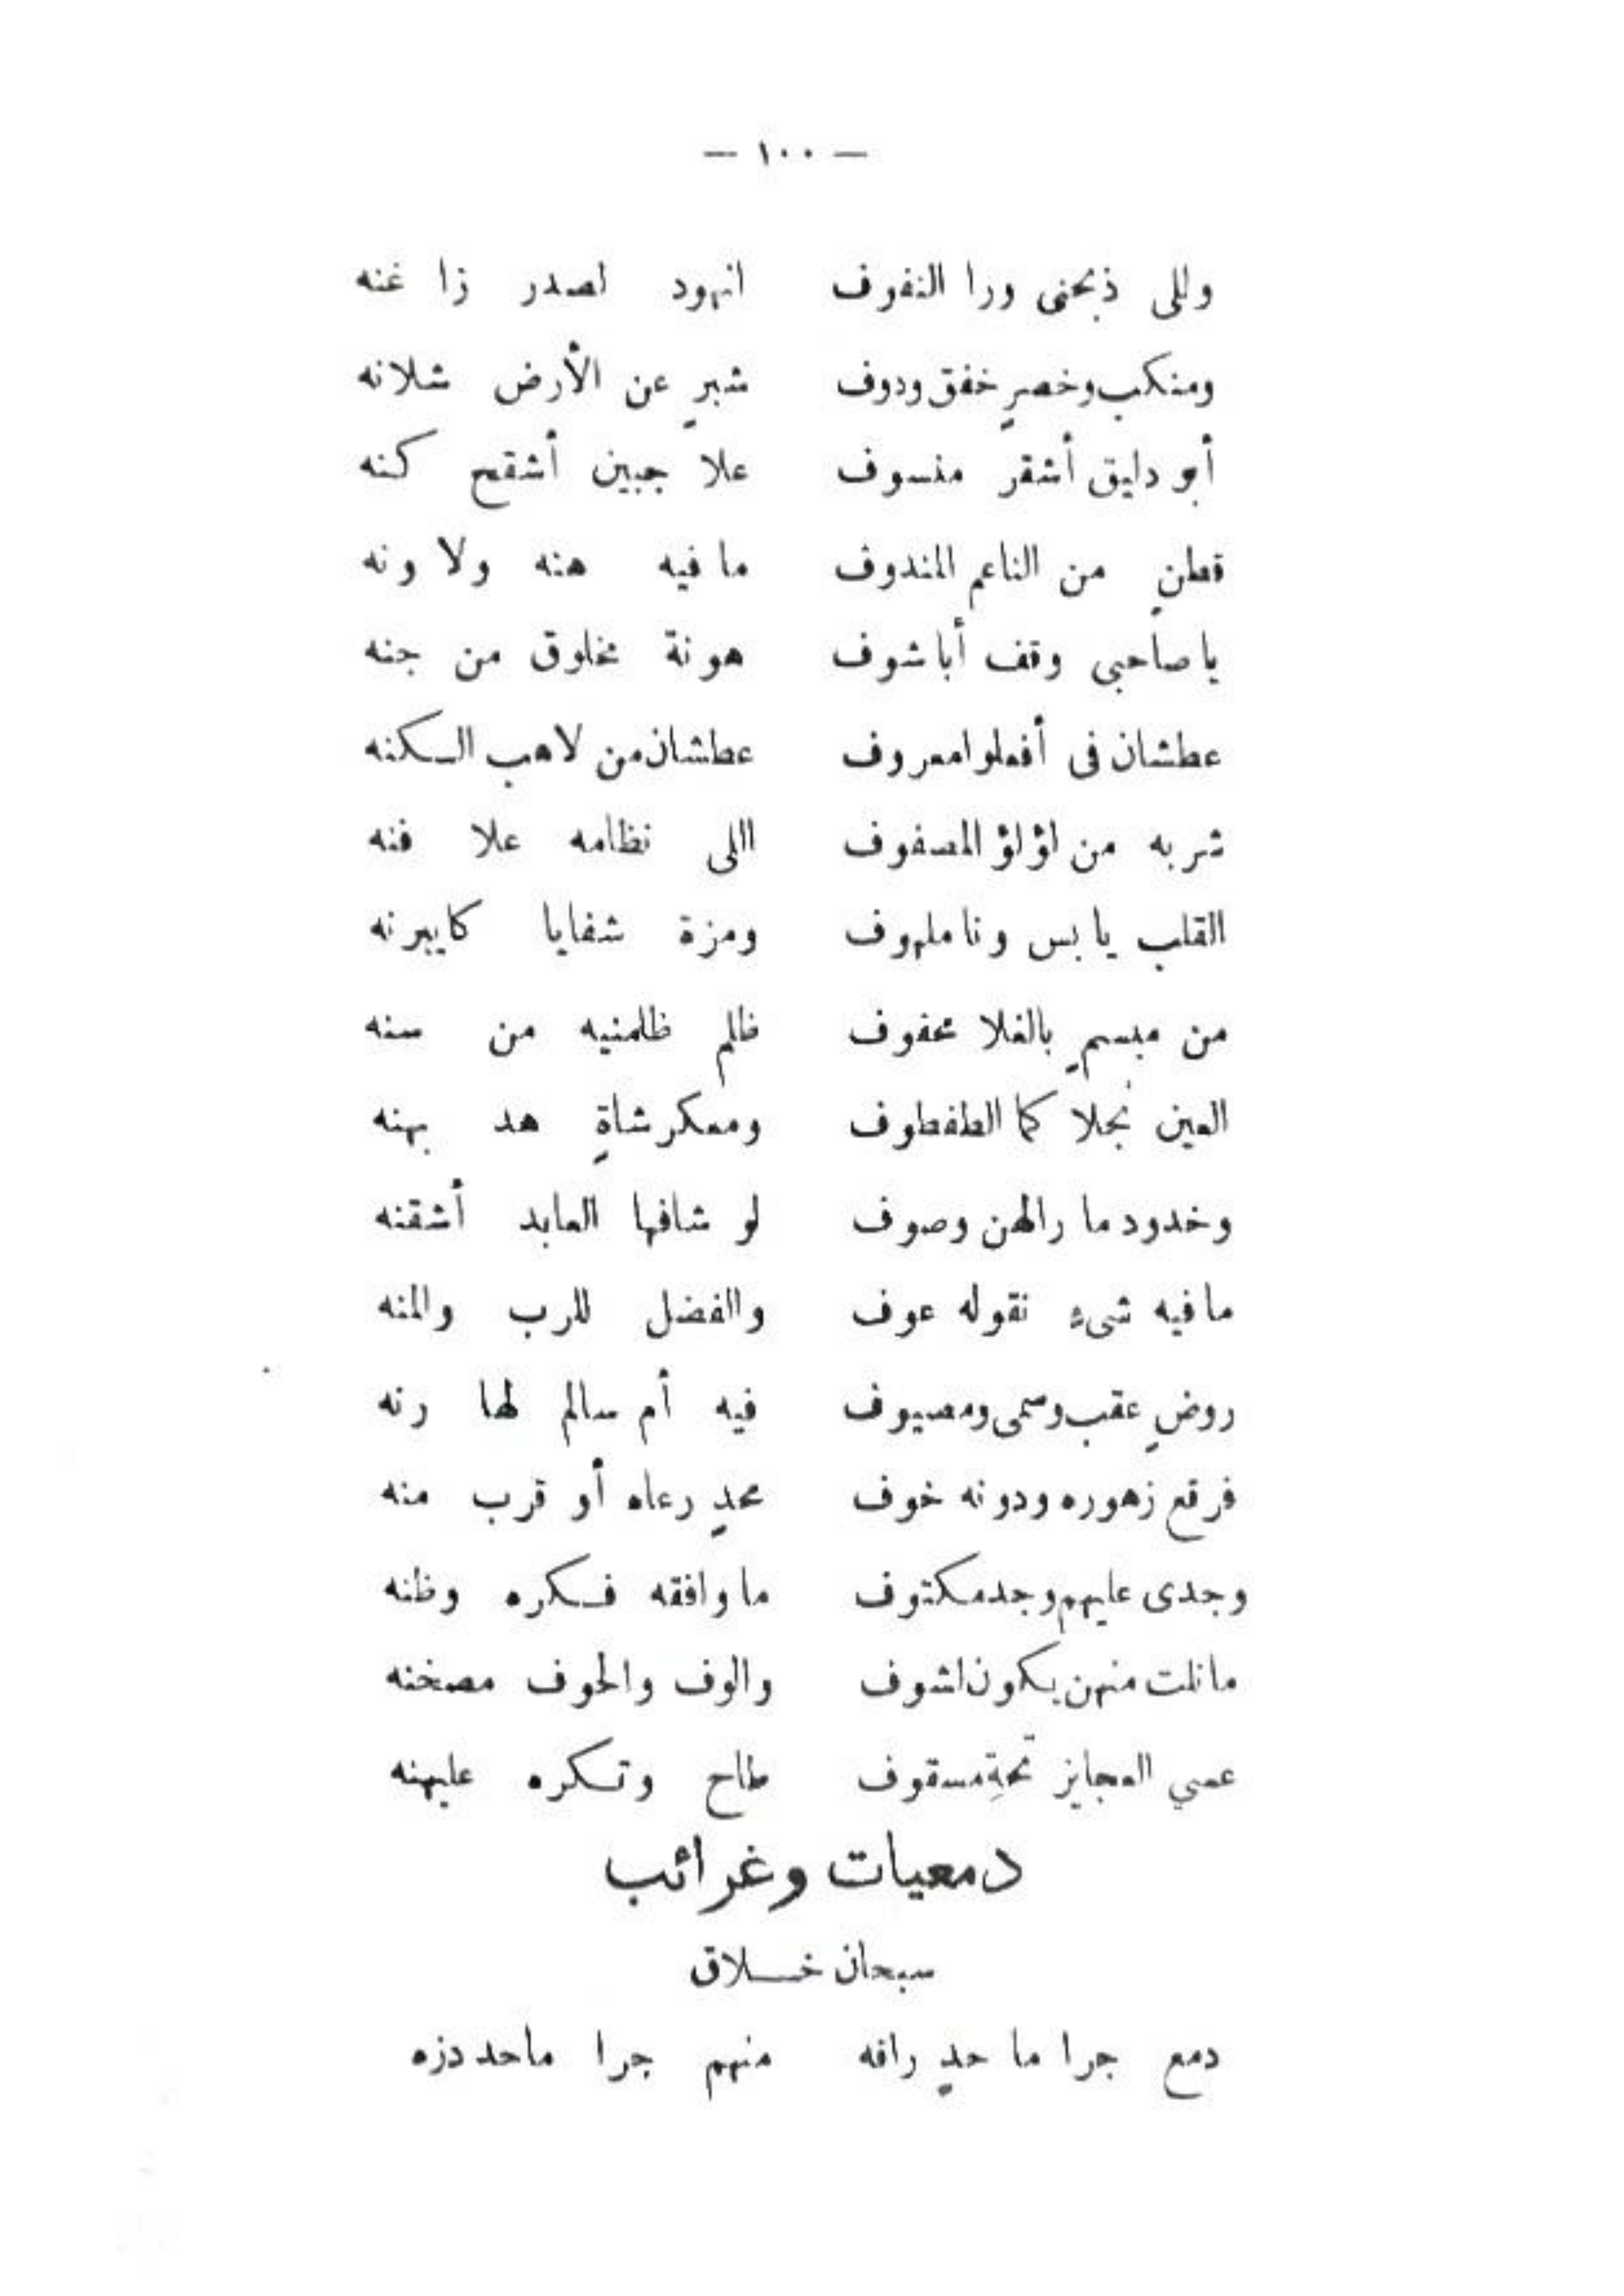 — ١٠٠ —
وللى ذبحنى ورا النفوف انهود لصدر زا غنه
ومنكب وخصرٍ خفق ودوف شبرٍ عن الأرض شلانه
أبو دليق أشقر منسوف علا جبين أشقح كنه
قطنٍ من الناعم المندوف ما فيه هنه ولا ونه
يا صاحبى وقف أبا شوف هونة مخلوق من جنه
عطشان فى أفعلوا معروف عطشان من لاهب السكنه
شربه من لؤلؤ المصفوف اللى نظامه علا فنه
القلب يابس ونا ملهوف ومزة شفايا كايبرنه
من مبسمٍ بالغلا محفوف ظلم ظلمنيه من سنه
العين نجلا كما الطفطوف ومعكرشاةٍ هد بهنه
وخدود ما رالهن وصوف لو شافها العابد أشقنه
ما فيه شىءٍ نقوله عوف والفضل للرب والمنه
روضٍ عقب وسمى ومصيوف فيه أم سالم لها رنه
فرقع زهوره ودونه خوف محدٍ رعاه أو قرب منه
وجدى عليهم وجد مكتوف ما وافقه فكره وظنه
ما نلت منهن يكون اشوف والوف والحوف مصخنه
عسي العجايز تحةِ مسقوف طاح وتكره عليهنه
دمعيات وغرائب
سبحان خلاق
دمع جرا ما حدٍ رافه منهم جرا ماحد دزه